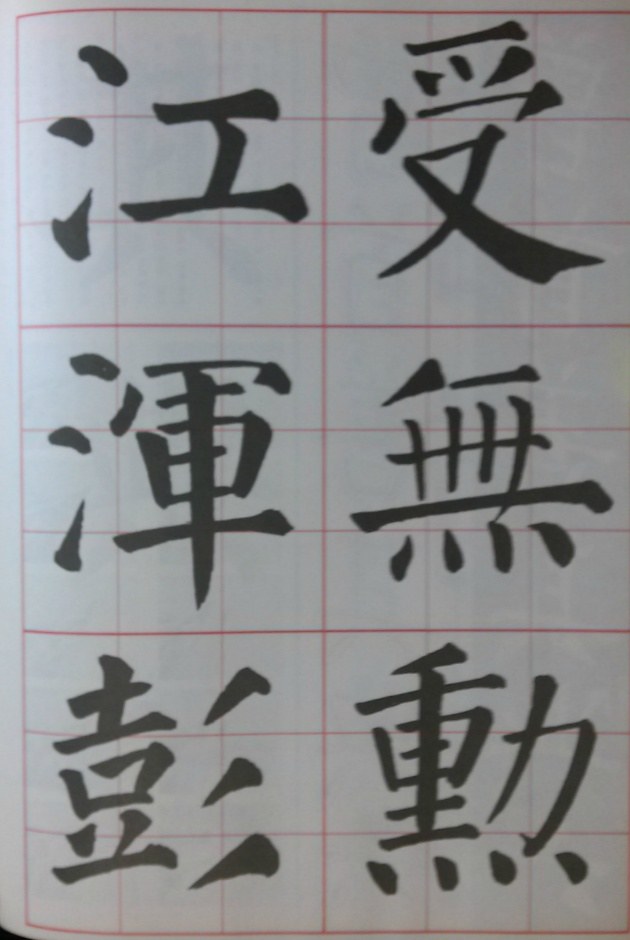 受無勳
江渾彭